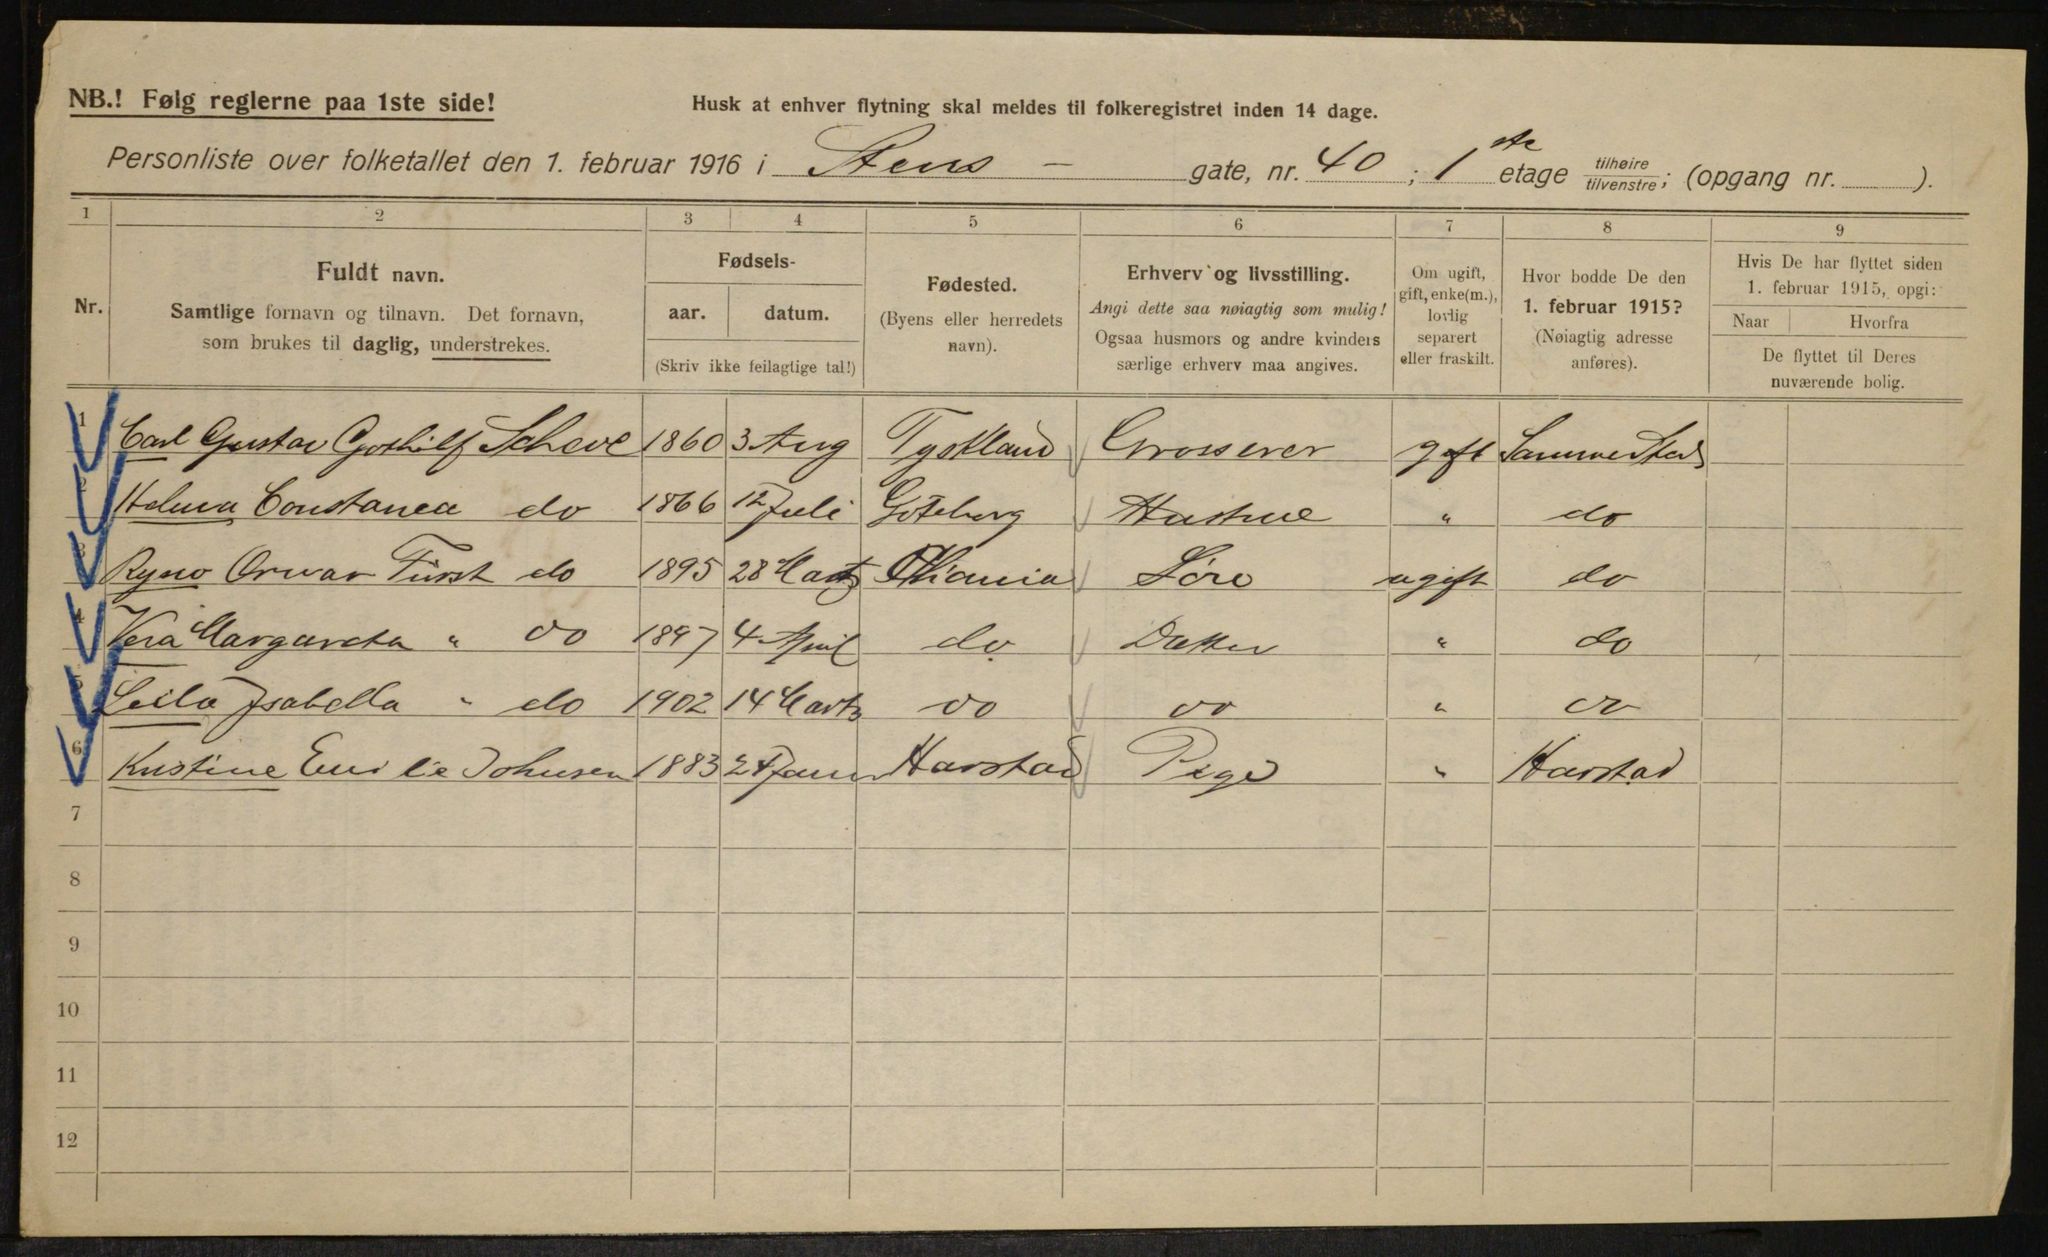 NB.! Følg reglerne paa 1ste side!
Husk at enhver flytning skal meldes til folkeregistret inden 14 dage.
Personliste over folketallet den 1. februar 1916 i Stens - gate, nr. 40 ; 1 ste etage tilhøire / tilvenstre ; (opgang nr. ).
1 2 3 4 5 6 7 8 9
Nr.
Fuldt navn.
Samtlige fornavn og tilnavn. Det fornavn,
som brukes til daglig, understrekes.
Fødsels-
aar. datum.
(Skriv ikke feilagtige tal!)
Fødested.
(Byens eller herredets
navn).
Erhverv og livsstilling.
Angi dette saa nøiagtig som mulig!
Ogsaa husmors og andre kvinders
særlige erhverv maa angives.
Om ugift,
gift, enke(m.),
lovlig
separert
eller fraskilt.
Hvor bodde De den
1. februar 1915?
(Nøiagtig adresse
anføres).
Hvis De har flyttet siden
1. februar 1915, opgi:
Naar Hvorfra
De flyttet til Deres
nuværende bolig.
1 Carl Gustav Gothilf Scheve 1860 3 Aug Tyskland Grosserer gift Samme Sted
2 Helma Constance do 1866 12 Juli Göteborg Hustru " do
3 Ryno Orvar Fürst do 1895 28 Marts Chiania Søn ugift do
4 Vera Margareta " do 1897 4 April do Datter " do
5 Leila Isabella " do 1902 14 Marts do do " do
6 Kristine Emilie Johnsen 1883 24 Januar Harstad Pige " Harstad
7
8
9
10
11
12